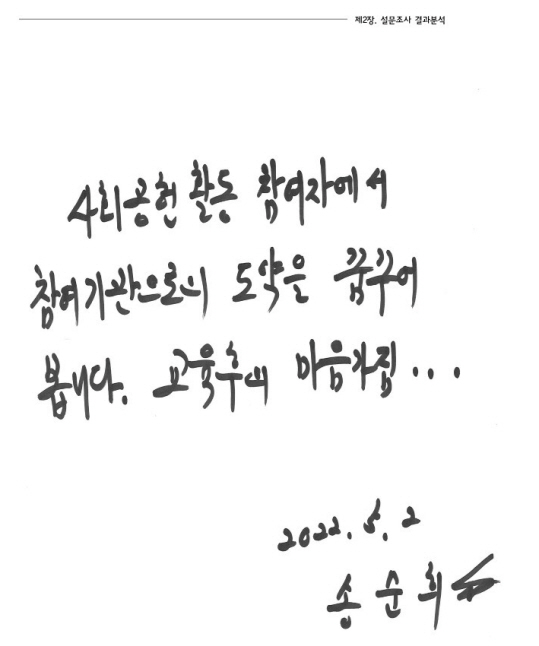 제2장. 설문조사 결과분석
사회공헌 활동 참여자에서
참여기관으로의 도약을 꿈꾸어
봅니다. 교육후의 마음가짐...
2022. 5. 2
송순희